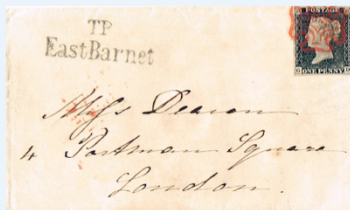 TP
East Barnet
POSTAGE
ONE PENNY
Miss Deacon
4 Portman Square
London.